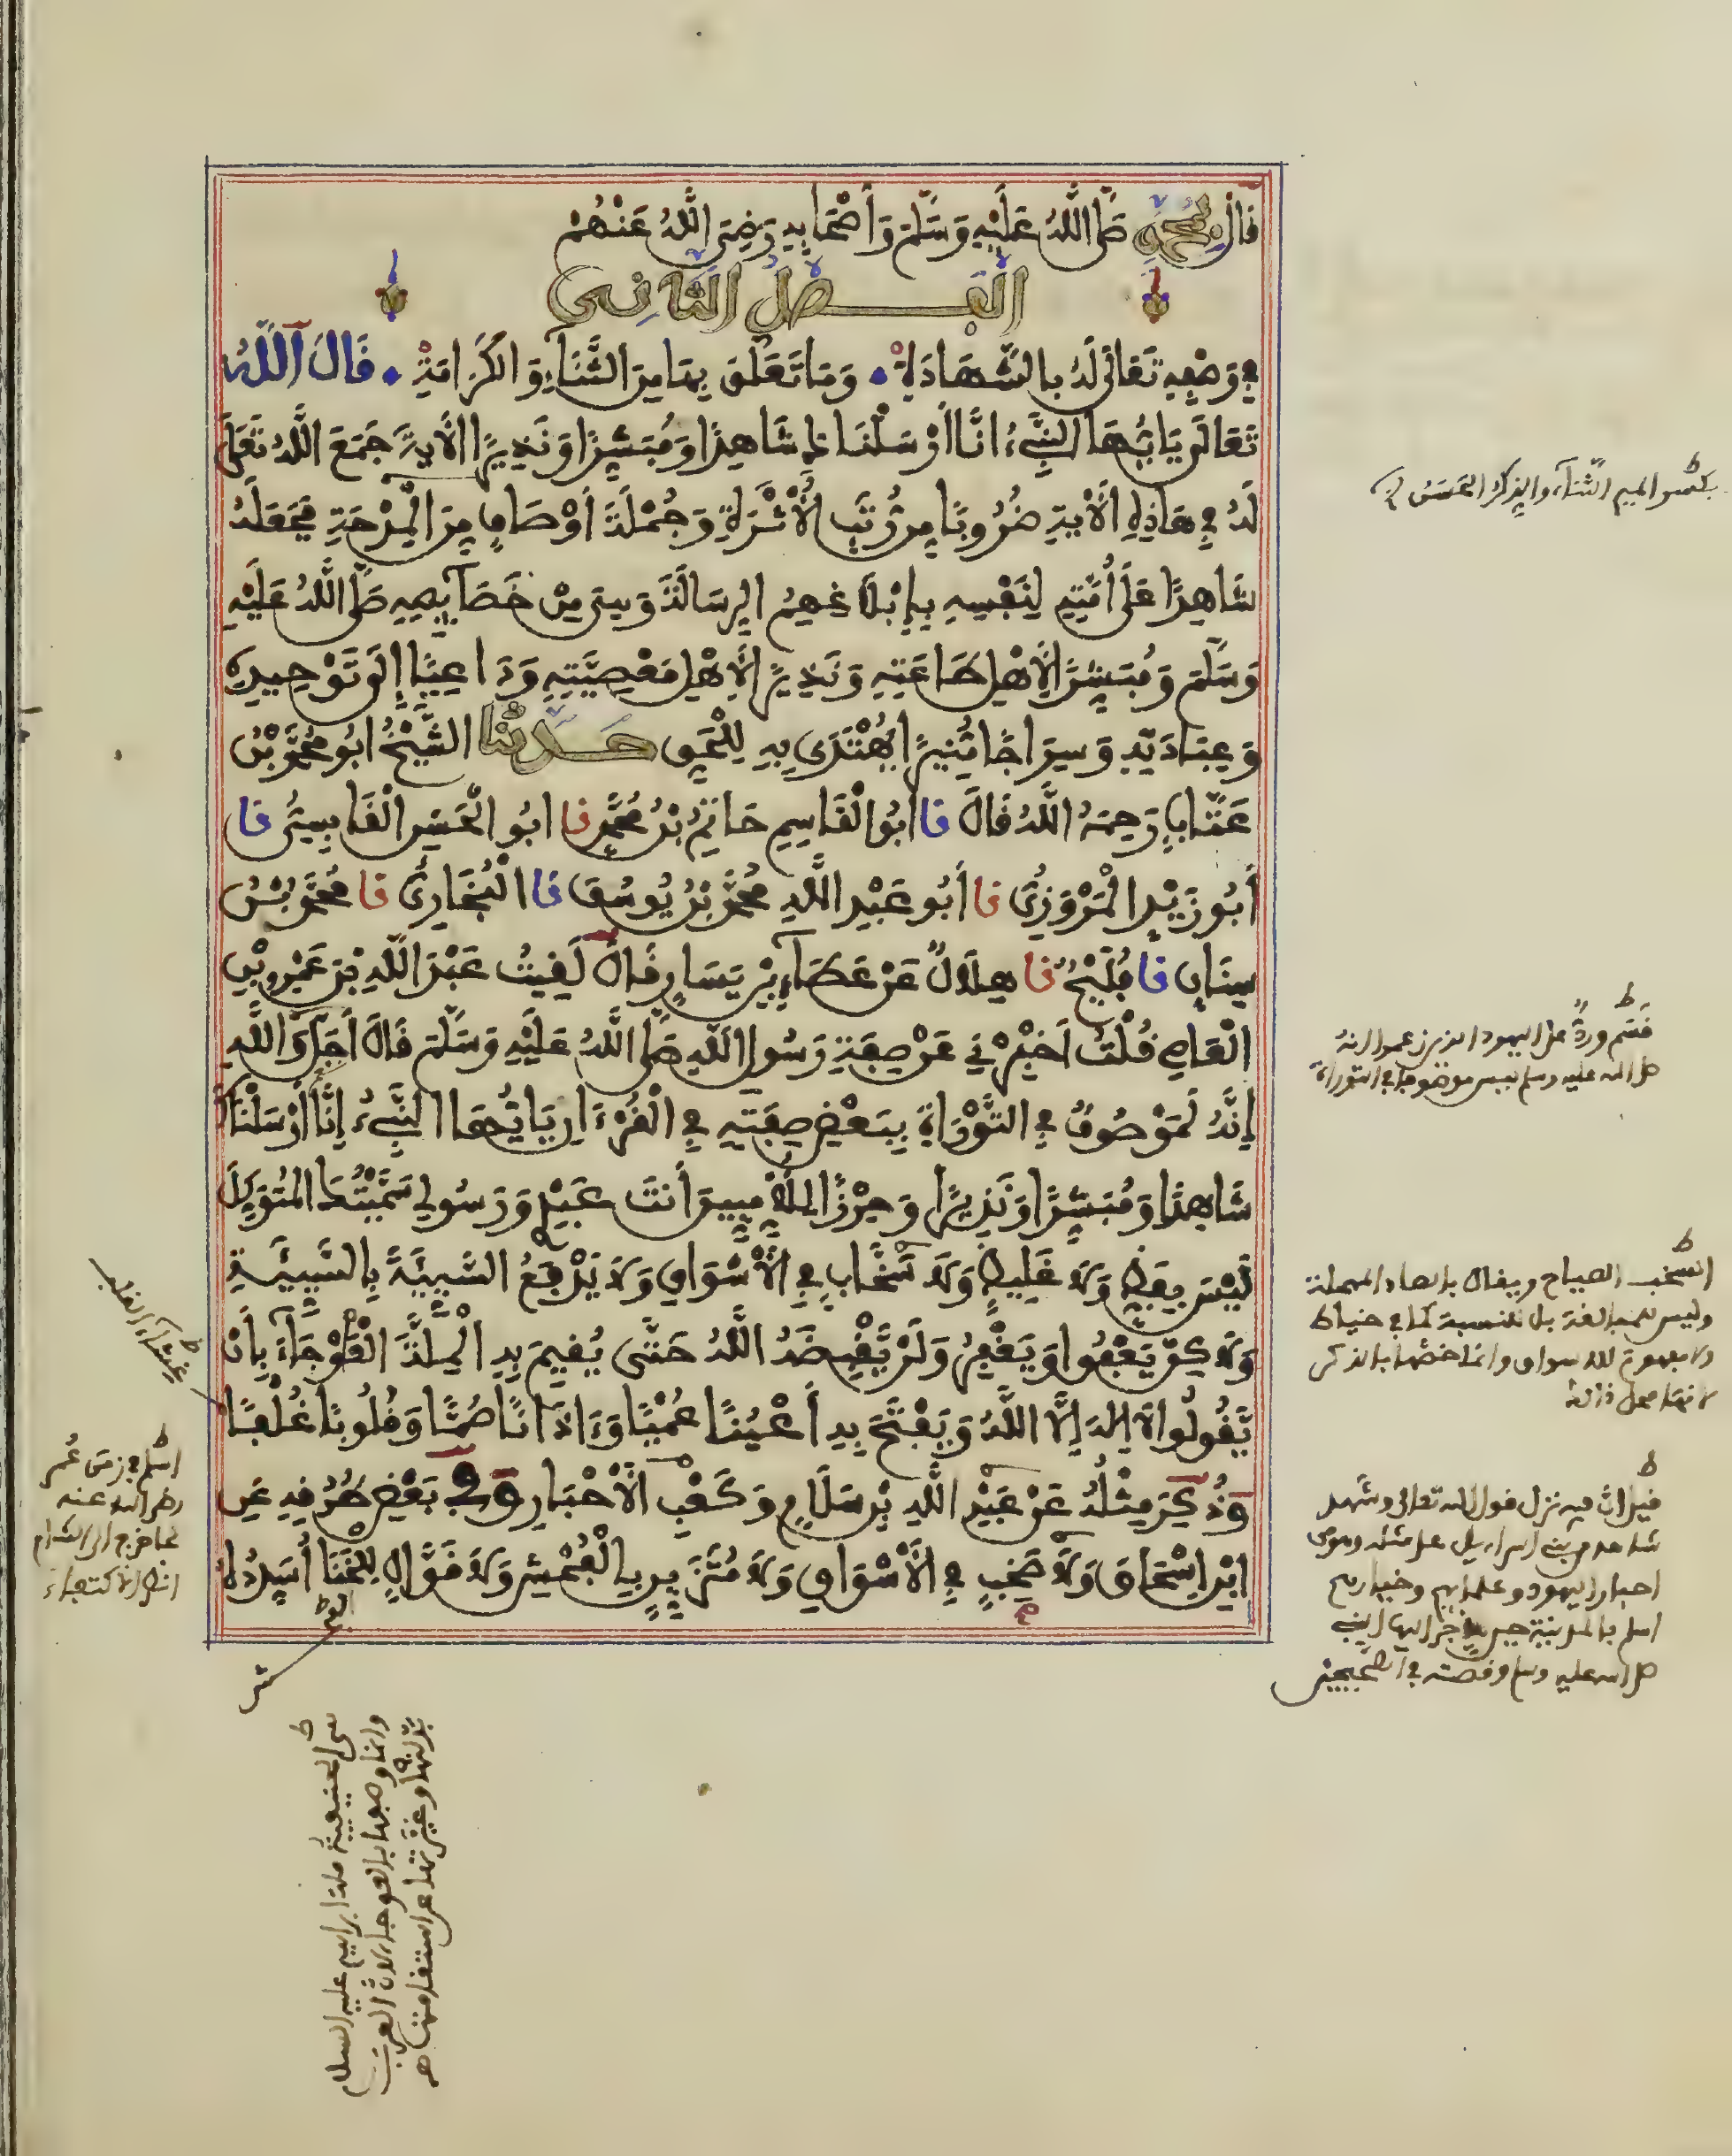 قَالَ بِمُحَمَّدٍ صَلَّى اللَّهُ عَلَيْهِ وَسَلَّمَ وَأَصْحَابِهِ رَضِيَ اللَّهُ عَنْهُمْ
الْفَصْلُ الثَّانِي
فِي وَصْفِهِ تَعَالَى لَهُ بِالشَّهَادَةِ وَمَا تَعَلَّقَ بِهَا مِنَ الثَّنَاءِ وَالْكَرَامَةِ قَالَ اللَّهُ
تَعَالَى يَا أَيُّهَا النَّبِيءُ انَّا أَرْسَلْنَاكَ شَاهِدًا وَمُبَشِّرًا وَنَذِيرًا الْآيَةَ جَمَعَ اللَّهُ تَعَالَى
لَهُ فِي هَذِهِ الْآيَةِ ضُرُوبًا مِنْ رُتَبِ الْأُثْرَةِ وَجُمْلَةَ أَوْصَافٍ مِنَ الْمِدْحَةِ فَجَعَلَهُ
شَاهِدًا عَلَى أُمَّتِهِ لِنَفْسِهِ بِإِبْلَاغِهِمُ الرِّسَالَةَ وَهِيَ مِنْ خَصَائِصِهِ صَلَّى اللَّهُ عَلَيْهِ
وَسَلَّمَ وَمُبَشِّرًا لِأَهْلِ طَاعَتِهِ وَنَذِيرًا لِأَهْلِ مَعْصِيَتِهِ وَدَاعِيًا إِلَى تَوْحِيدِهِ
وَعِبَادَتِهِ وَسِرَاجًا مُنِيرًا يُهْتَدَى بِهِ لِلْحَقِّ حَدَّثَنَا الشَّيْخُ ابُو مُحَمَّدِ بْنُ
عَتَّابٍ رَحِمَهُ اللَّهُ قَالَ نَا أَبُو الْقَاسِمِ حَاتِمُ بْنُ مُحَمَّدٍ نَا ابُو الْحَسَنِ الْقَابِسِيُّ نَا
أَبُو زَيْدٍ الْمَرْوَزِيُّ نَا أَبُو عَبْدِ اللَّهِ مُحَمَّدُ بْنُ يُوسُفَ نَا الْبُخَارِيُّ نَا مُحَمَّدُ بْنُ
سِنَانٍ نَا فُلَيْحٌ نَا هِلَالٌ عَنْ عَطَاءِ بْنِ يَسَارٍ قَالَ لَقِيتُ عَبْدَ اللَّهِ بْنَ عَمْرِو بْنِ
الْعَاصِ قُلْتُ أَخْبِرْنِي عَنْ صِفَةِ رَسُولِ اللَّهِ صَلَّى اللَّهُ عَلَيْهِ وَسَلَّمَ قَالَ أَجَلْ وَاللَّهِ
إِنَّهُ لَمَوْصُوفٌ فِي التَّوْرَاةِ بِبَعْضِ صِفَتِهِ فِي الْقُرْءَانِ يَا أَيُّهَا النَّبِيءُ إِنَّا أَرْسَلْنَاكَ
شَاهِدًا وَمُبَشِّرًا وَنَذِيرًا وَحِرْزًا لِلْأُمِّيِّينَ أَنْتَ عَبْدِي وَرَسُولِي سَمَّيْتُكَ الْمُتَوَكِّلَ
لَيْسَ بِفَظٍّ وَلَا غَلِيظٍ وَلَا سَخَّابٍ فِي الْأَسْوَاقِ وَلَا يَدْفَعُ السَّيِّئَةَ بِالسَّيِّئَةِ
وَلَكِنْ يَعْفُوا وَيَغْفِرُ وَلَنْ يَقْبِضَهُ اللَّهُ حَتَّى يُقِيمَ بِهِ الْمِلَّةَ الْعَوْجَاءَ بِأَنْ
يَقُولُوا لَا إِلَهَ إِلَّا اللَّهُ وَيَفْتَحَ بِهِ أَعْيُنًا عُمْيًا وَءَاذَانًا صُمًّا وَقُلُوبًا غُلْفًا
وَذُكِرَ مِثْلُهُ عَنْ عَبْدِ اللَّهِ بْنِ سَلَامٍ وَكَعْبِ الْأَحْبَارِ وَفِي بَعْضِ طُرُقِهِ عَنِ
ابْنِ إِسْحَاقَ وَلَا صَخِبٍ فِي الْأَسْوَاقِ وَلَا مُتَزَيِّنٍ بِالْفُحْشِ وَلَا قَوَّالٍ لِلْخَنَا أُسَدِّدُهُ
بكسر الميم الثناء والذكر الحسن
قسم وردّ على اليهود الذين زعموا انه
صلى الله عليه وسلم ليس موصوفا في التوراة
السخب الصياح ويقال بالصاد المهملة
وليس للمبالغة بل للنسبة كما في خياط
ولا مفهوم للاسواق وانما خصها بالذكر
لانها محل ذلك
قيل ان فيه نزل قول الله تعالى وشهد
شاهد من بني اسراءيل على مثله وهو من
احبار اليهود وعلمائهم وخيارهم
اسلم بالمدينة حين هاجر اليها النبي
صلى الله عليه وسلم وقصته في الصحيحين
غشاء القلب
اسلم في زمن عمر
رضي الله عنه
لما خرج الى الشام
يعني الحنيفية ملة ابراهيم عليه السلام
وانما وصفها بالعوجاء لان العرب
بدلتها وغيرتها عن استقامتها هـ